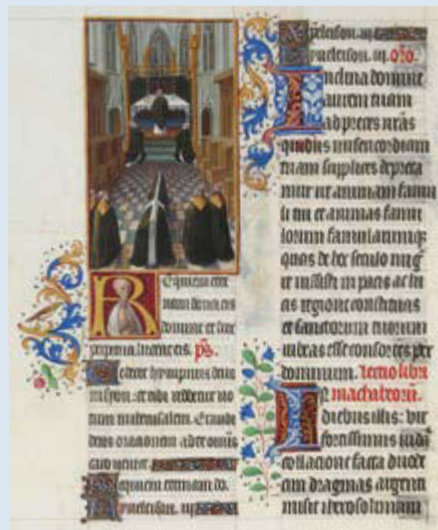 Requiem eter
nam dona eis
domine et lux
perpetua luceat eis. ps.
Te decet hympnus deus
in syon: et tibi reddetur vo
tum in iherusalem. Exaudi
deus orationem ad te omnis
caro veniet.
Requiem eternam do.
kyrieleison. iij.
xpeleison. iij.
kyrieleison. iij. oro.
Inclina domine
aurem tuam
ad preces nras
quibus misericordiam
tuam supplices depreca
mur ut animam famu
li tui et animas famu
lorum famularumq
quas de hoc seculo mig
re iussisti in pacis ac lu
cis regione constituas
et sanctorum tuorum
iubeas esse consortes per
dominum. lectio libri
machabeorum.
In diebus illis: vir
fortissimus
collatione facta duode
cim dragmas argenti
misit iherosolimam